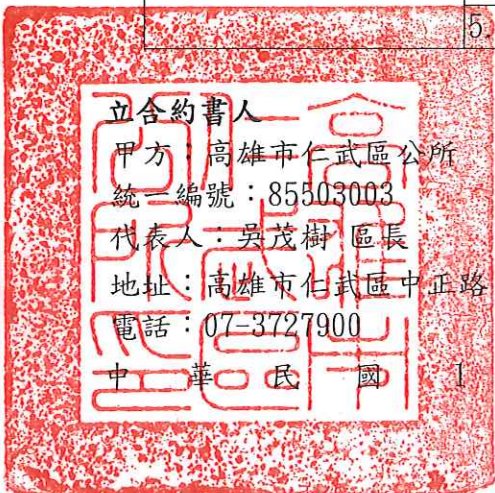 5
立合約書人
甲方：高雄市仁武區公所
統一編號：85503003
代表人：吳茂樹 區長
地址：高雄市仁武區中正路
電話：07-3727900
中 華 民 國 1
高雄市仁武區公所印